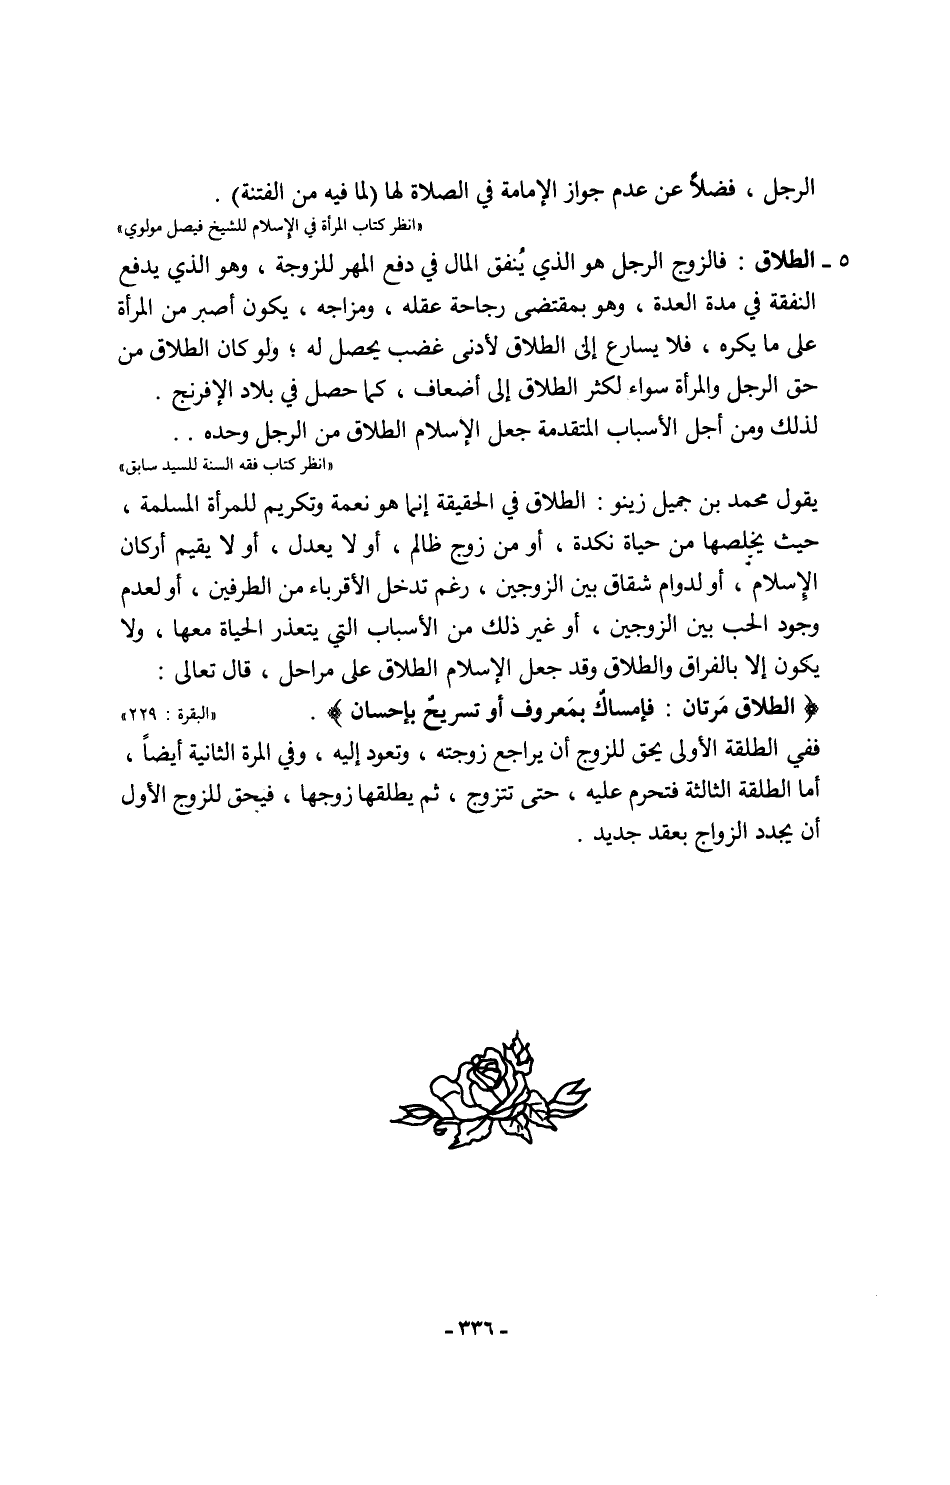 الرجل ، فضلاً عن عدم جواز الإمامة في الصلاة لها (لما فيه من الفتنة) .
«انظر كتاب المرأة في الإسلام للشيخ فيصل مولوي»
٥ - الطلاق : فالزوج الرجل هو الذي يُنفق المال في دفع المهر للزوجة ، وهو الذي يدفع
النفقة في مدة العدة ، وهو بمقتضى رجاحة عقله ، ومزاجه ، يكون أصبر من المرأة
على ما يكره ، فلا يسارع إلى الطلاق لأدنى غضب يحصل له ؛ ولو كان الطلاق من
حق الرجل والمرأة سواء لكثر الطلاق إلى أضعاف ، كما حصل في بلاد الإفرنج .
لذلك ومن أجل الأسباب المتقدمة جعل الإسلام الطلاق من الرجل وحده . .
«انظر كتاب فقه السنة للسيد سابق»
يقول محمد بن جميل زينو : الطلاق في الحقيقة إنما هو نعمة وتكريم للمرأة المسلمة ،
حيث يخلصها من حياة نكدة ، أو من زوج ظالم ، أو لا يعدل ، أو لا يقيم أركان
الإسلام ، أو لدوام شقاق بين الزوجين ، رغم تدخل الأقرباء من الطرفين ، أو لعدم
وجود الحب بين الزوجين ، أو غير ذلك من الأسباب التي يتعذر الحياة معها ، ولا
يكون إلا بالفراق والطلاق وقد جعل الإسلام الطلاق على مراحل ، قال تعالى :
﴿ الطلاق مَرتان : فإمساكٌ بمَعروف أو تسريحٌ بإحسان ﴾ . «البقرة : ٢٢٩»
ففي الطلقة الأولى يحق للزوج أن يراجع زوجته ، وتعود إليه ، وفي المرة الثانية أيضاً ،
أما الطلقة الثالثة فتحرم عليه ، حتى تتزوج ، ثم يطلقها زوجها ، فيحق للزوج الأول
أن يجدد الزواج بعقد جديد .
- ٣٣٦ -